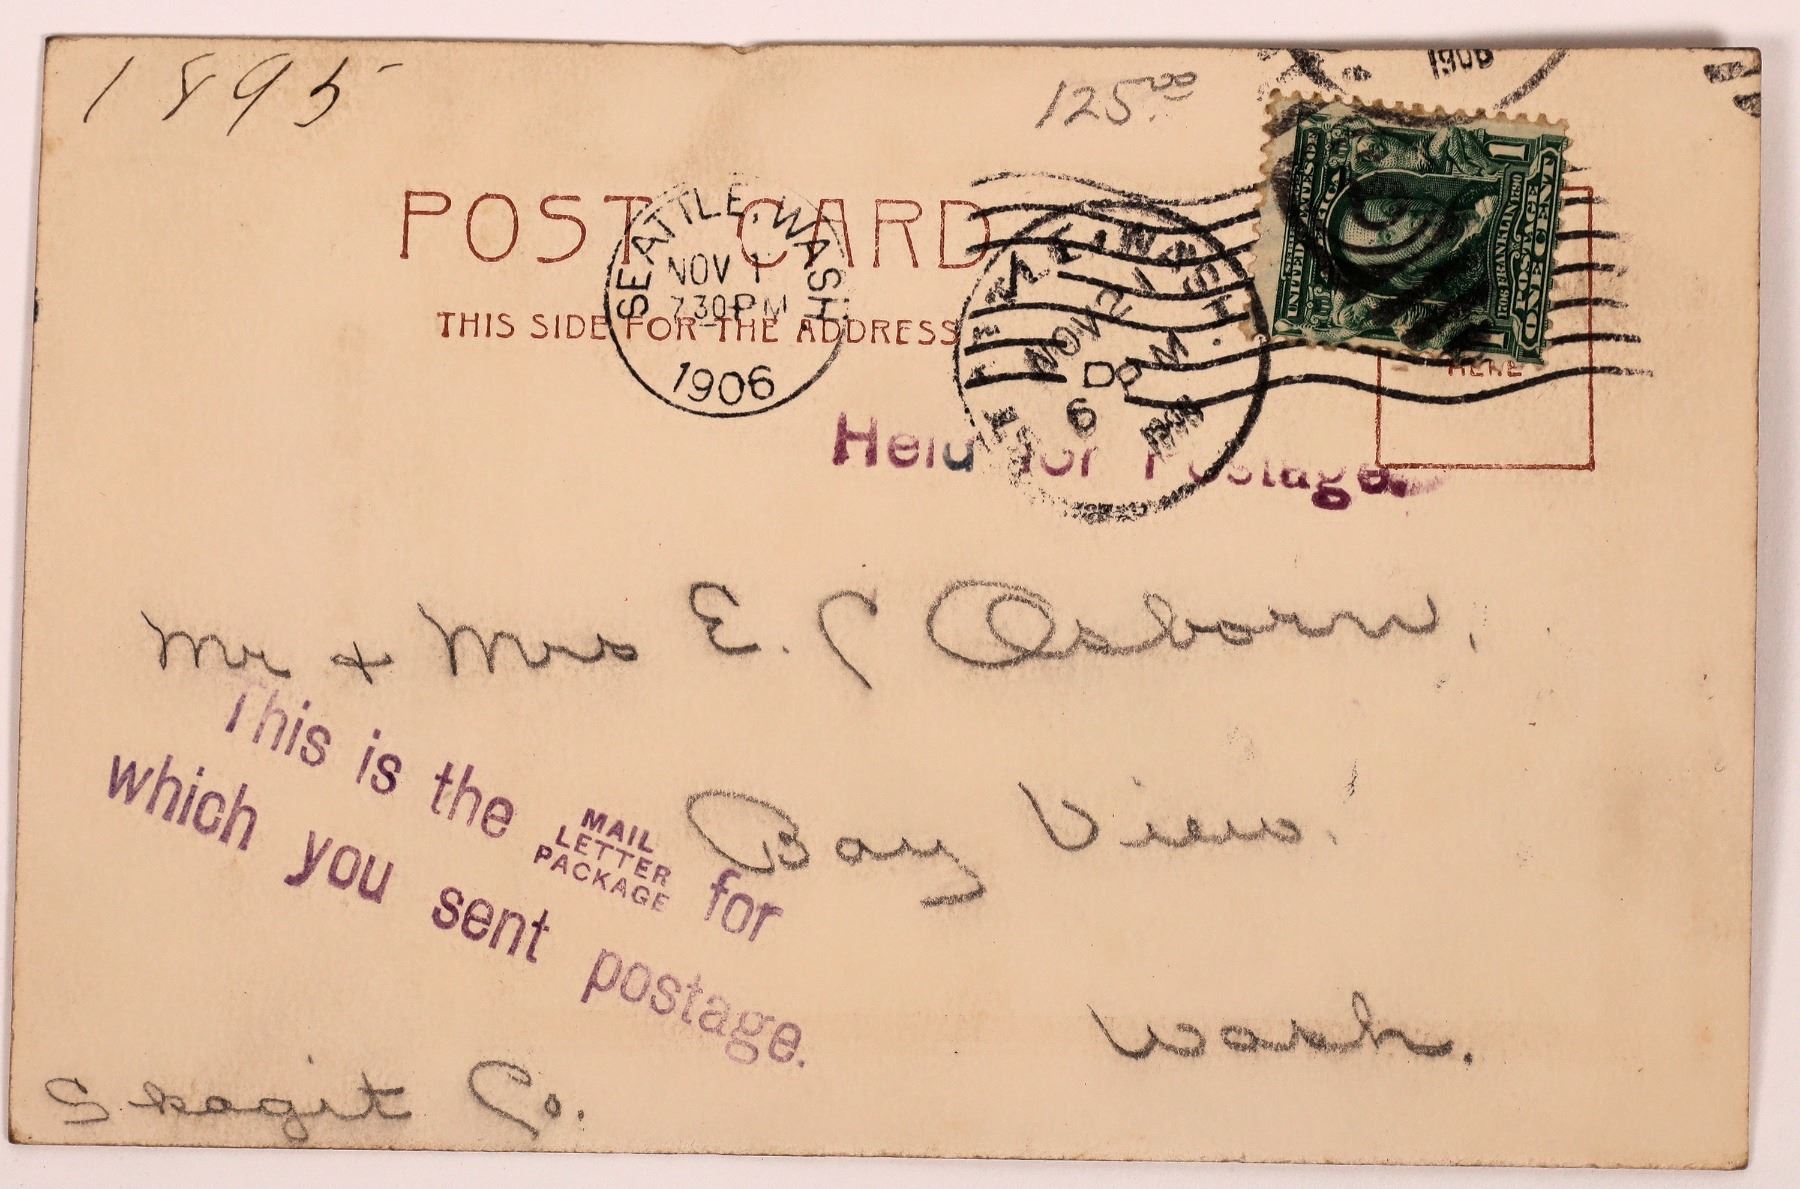 1895
125.00
1906
POST CARD
SEATTLE, WASH.
NOV 1
7 30 PM
1906
THIS SIDE FOR THE ADDRESS
NOV 21
D
6
SERIES 1902
UNITED STATES OF AMERICA
1706 FRANKLIN 1790
POSTAGE
ONE CENT
1
HERE
Held for Postage.
Mr & Mrs E. C Osborn,
This is the MAIL
LETTER
PACKAGE for
which you sent postage.
Bay View.
Wash.
Skagit Co.